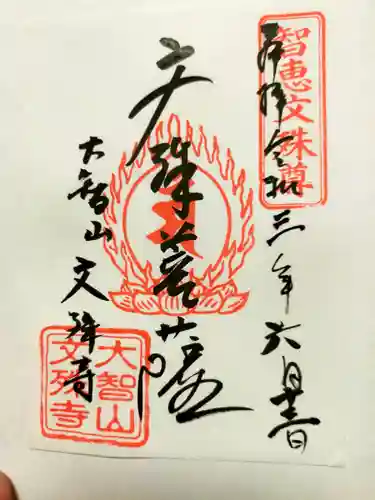 奉拝 令和三年六月廿三日
智恵文殊尊
文殊菩薩
大智山 文殊寺
大智山
文殊寺